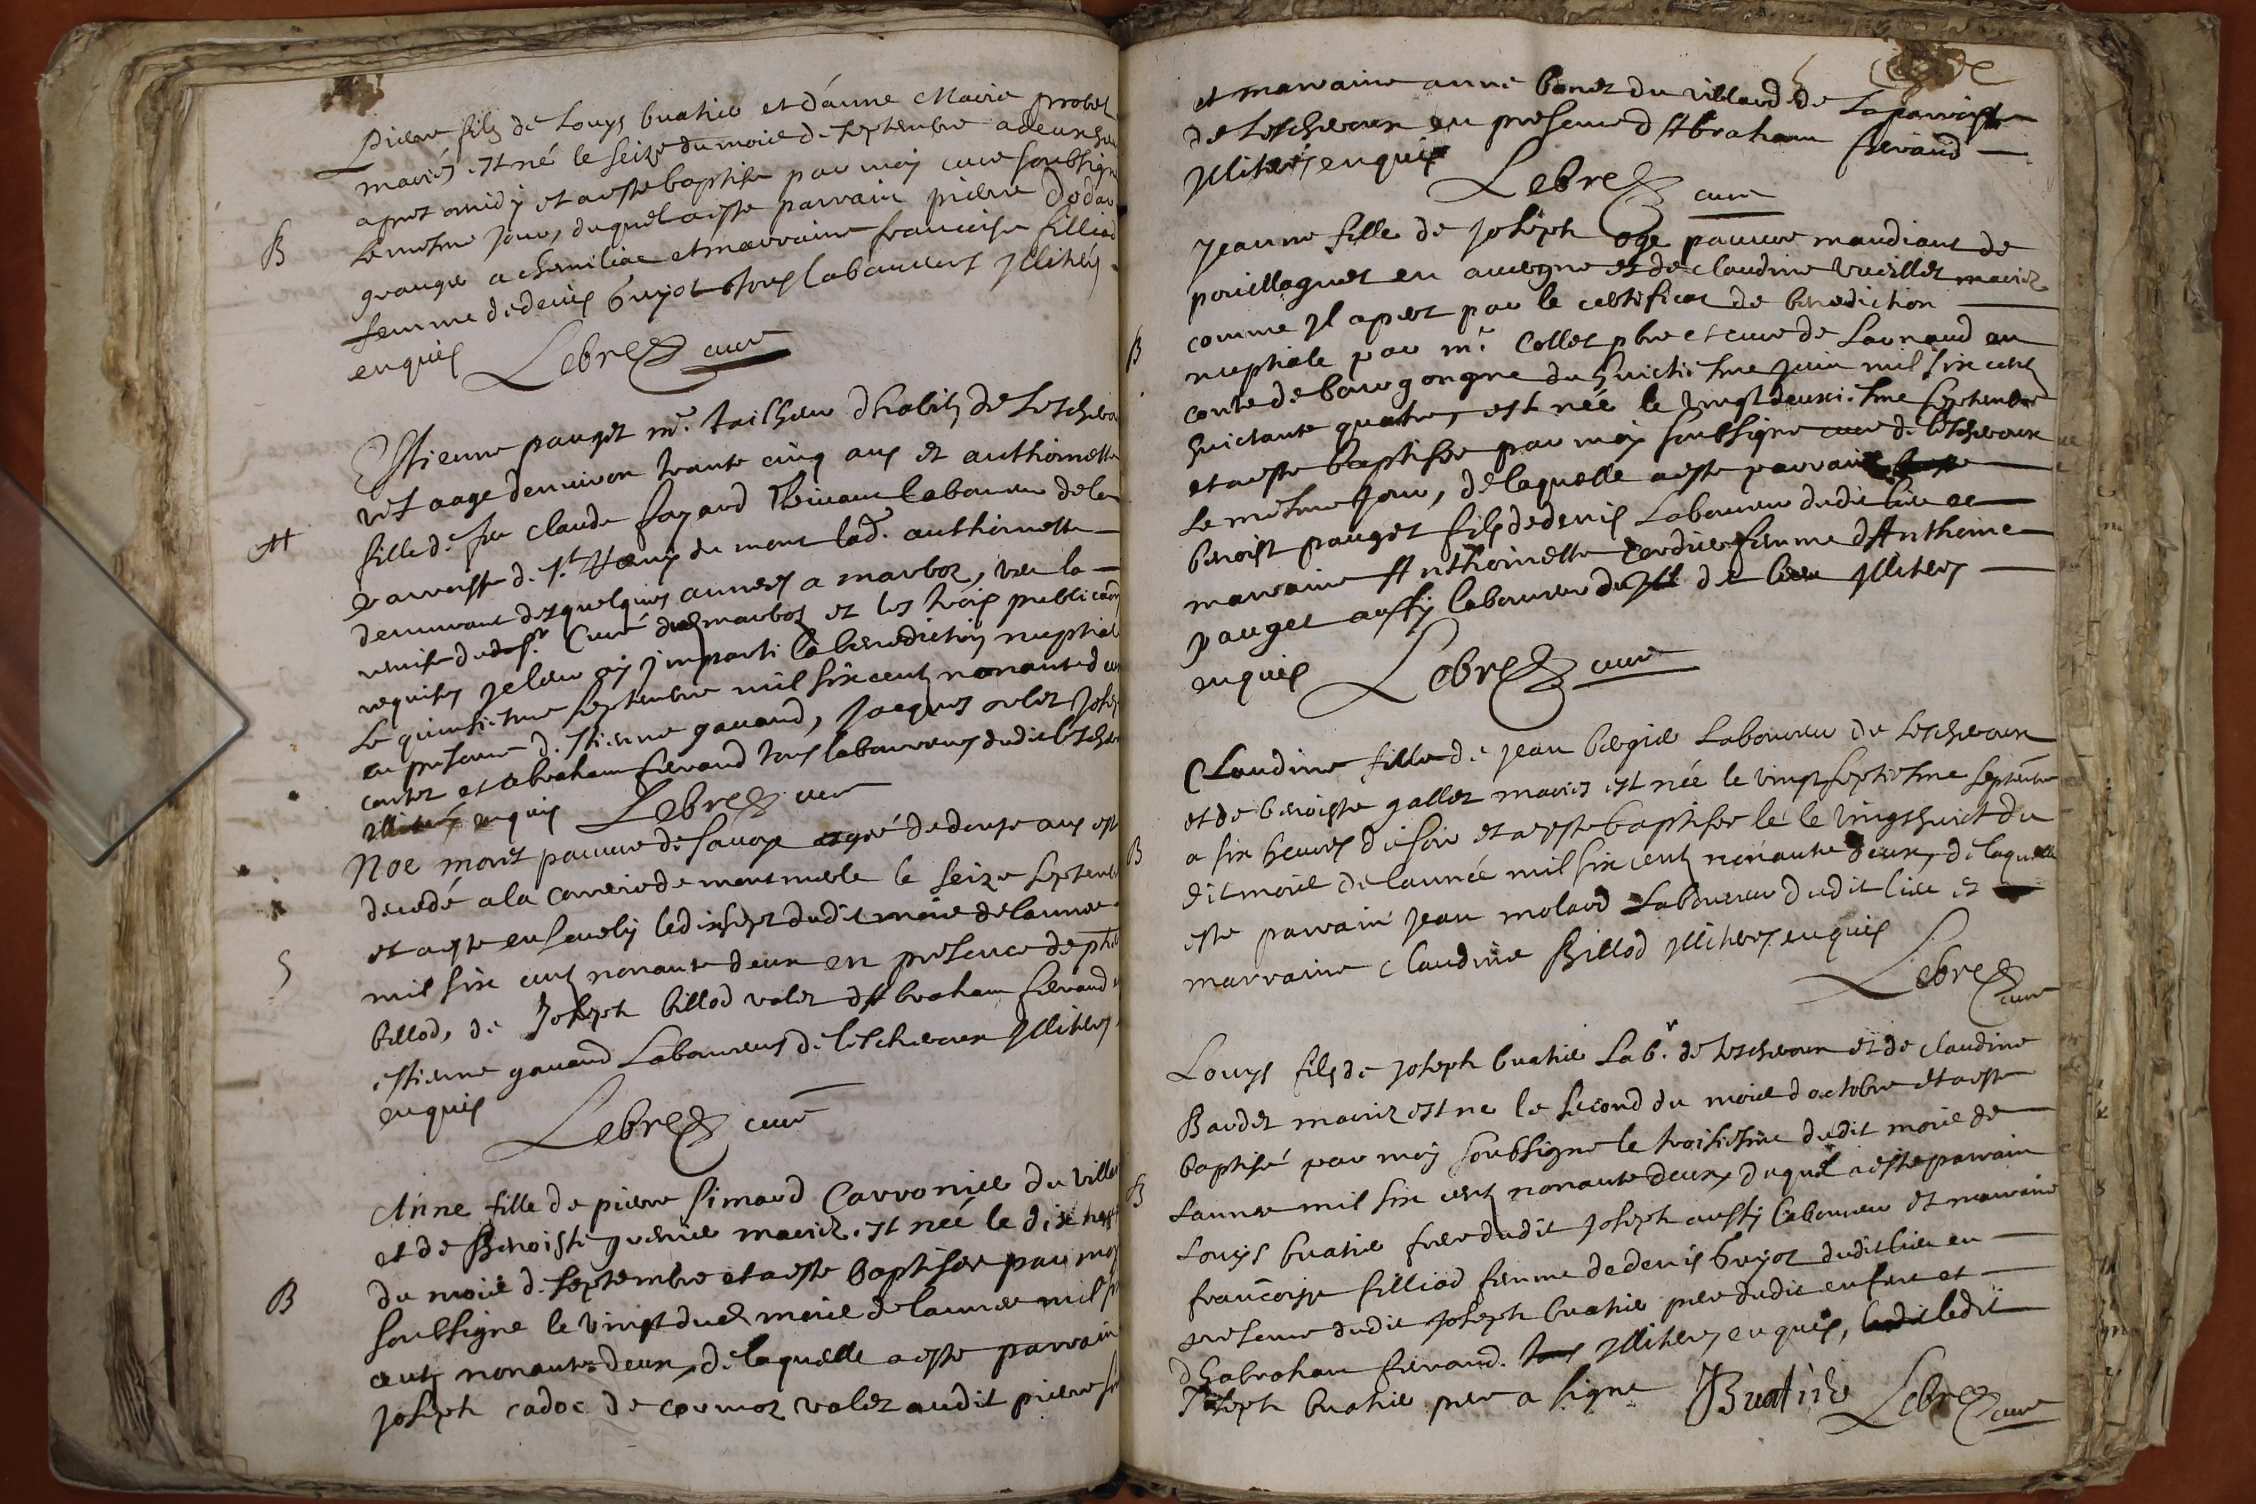 Pierre fils de Louys buatier et d'anne Marie probet
mariés est né le seize du mois de septembre a deux heu
apres midy et a esté baptisé par moy curé soubsigné
B
le mesme jour, duquel a esté parrain pierre dodar
granger a chemillac et marraine francoise filliod
femme de denis buyot tous laboureurs illitéres
enquis Lebrez curé
Estienne pauget mre. tailheur d'habits de Lescheroux
vef aagé denviron trante cinq ans et anthoinette
M
fille de feu claude fayard vivant laboureur de la
parroisse de st. du mont lad. anthoinette
demeurant des quelques années a marboz, veu la
remise du dud sr. Curé de marboz et les trois publications
requises je leur ay imparti la benediction nuptial
le quinsiesme septembre mil six cent nonante deux
en presence d'estienne gavand, jacques ovlet joseph
cartez et abraham fievand tous laboureurs dudit lescher
illitérés enquis Lebrez curé
Noe moret pauvre de savoye agé de douse ans est
decedé a la correrie de montmerle le seize septemb
S
et a esté ensevely le dixsept dudit mois de l'année
mil six cent nonante deux en presence de
billod, de Joseph billod valet d'Abraham fievand
estienne gavand Laboureurs de lescheroux illitérés
enquis
Lebrez curé
Anne fille de pierre simard Carronier du villar
et de Benoiste guerrie mariez est née le dix neuf
du mois de septembre et a esté baptisée par moy
B
soubsigné le vingt dud mois de l'année mil six
cent nonante deux, de laquelle a esté parrain
joseph cadoc de cormoz valet audit pierre si
et marraine anne bonet du villard de La parroisse
de Lescheroux en presence d'Abraham fievand
illiterés enquis
Lebrez curé
Jeanne fille de joseph oge pauvre mandiant de
pouillagnet en auvergne et de claudine vuillet mariez
comme il apert par le certificat de benediction
B
nuptiale par mr. Collet pbre et curé de Larnaud en
conté de bourgongne du huictiesme juin mil six cent
huictante quatre, est née le vingt deuxiesme septembre
et a esté baptisée par moy soubsigné curé de lescheroux
le mesme jour, de laquelle a esté parrain
benoist pauget fils de denis Laboureur dudit lieu et
marraine Anthoinette cordier femme d'Anthoine
pauget aussy laboureur du dit lieu illiterés
enquis Lebrez curé
Claudine fille de jean bergier Laboureur de Lescheroux
et de benoiste gallet mariés est née le vingt septiesme septembre
B
a six heures du soir et a esté baptisée le le vingt huict du
dit mois de l'année mil six cent nonante deux, de laquelle
esté parrain jean molard Laboureur dudit lieu et
marraine claudine Billod illiterés enquis
Lebrez
curé
Louys fils de joseph buatier Labr. de Lescheroux et de claudine
Bardet mariez est né le second du mois d'octobre et a esté
baptisé par moy soubsigné le troisiesme dudit mois de
B
l'année mil six cent nonante deux, duquel a esté parrain
Louys buatier frere dudit joseph aussy laboureur et marraine
francoise filliod femme de denis buyot dudit lieu en
presence dudit joseph buatier pere dudit enfant et
d'Habraham fievand. illiterés enquis, ledit
Joseph buatier pere a signé JBuatier Lebrez curé